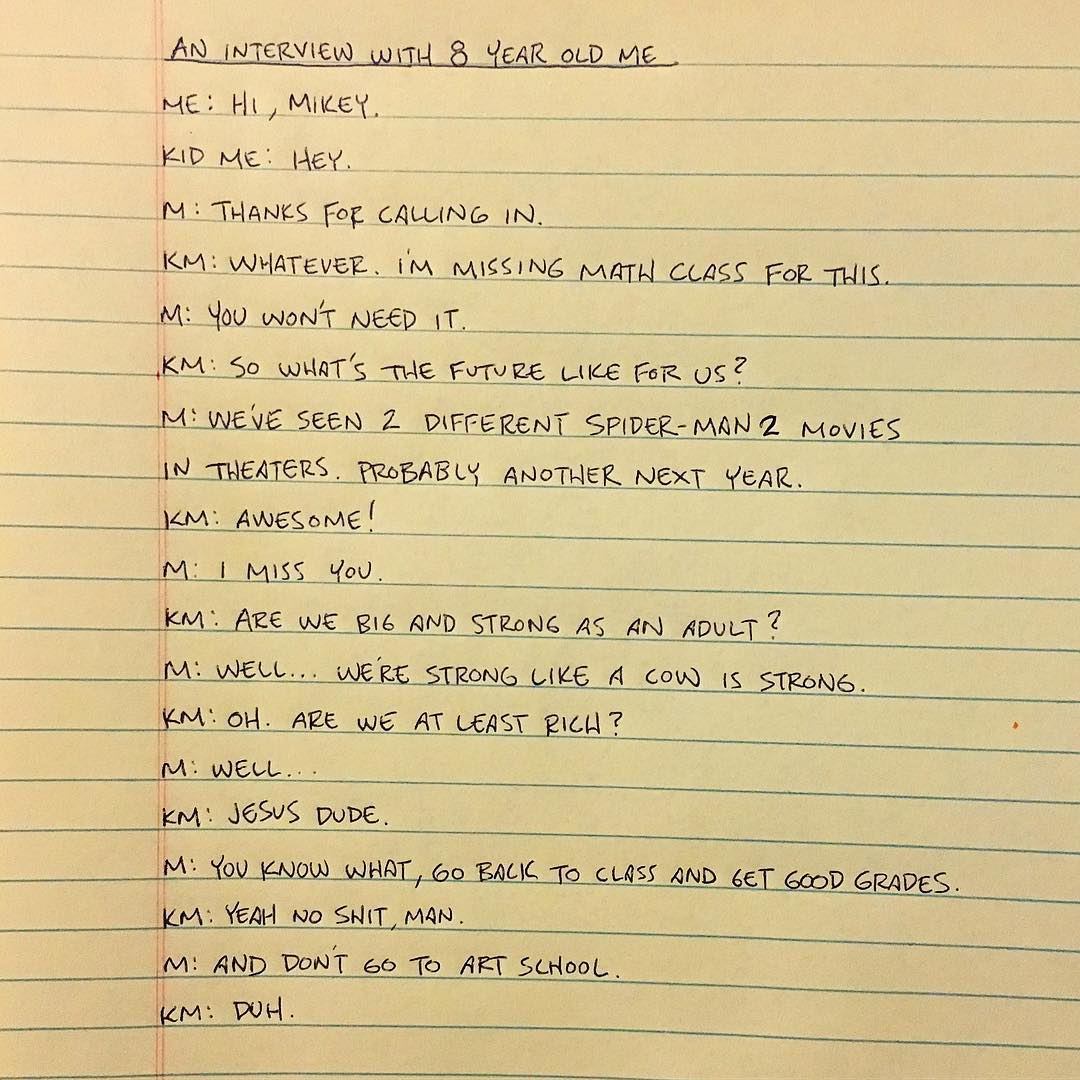 AN INTERVIEW WITH 8 YEAR OLD ME
ME: HI, MIKEY.
KID ME: HEY.
M: THANKS FOR CALLING IN.
KM: WHATEVER. I'M MISSING MATH CLASS FOR THIS.
M: YOU WON'T NEED IT.
KM: SO WHAT'S THE FUTURE LIKE FOR US?
M: WE'VE SEEN 2 DIFFERENT SPIDER-MAN 2 MOVIES
IN THEATERS. PROBABLY ANOTHER NEXT YEAR.
KM: AWESOME!
M: I MISS YOU.
KM: ARE WE BIG AND STRONG AS AN ADULT?
M: WELL... WE'RE STRONG LIKE A COW IS STRONG.
KM: OH. ARE WE AT LEAST RICH?
M: WELL...
KM: JESUS DUDE.
M: YOU KNOW WHAT, GO BACK TO CLASS AND GET GOOD GRADES.
KM: YEAH NO SHIT, MAN.
M: AND DON'T GO TO ART SCHOOL.
KM: DUH.